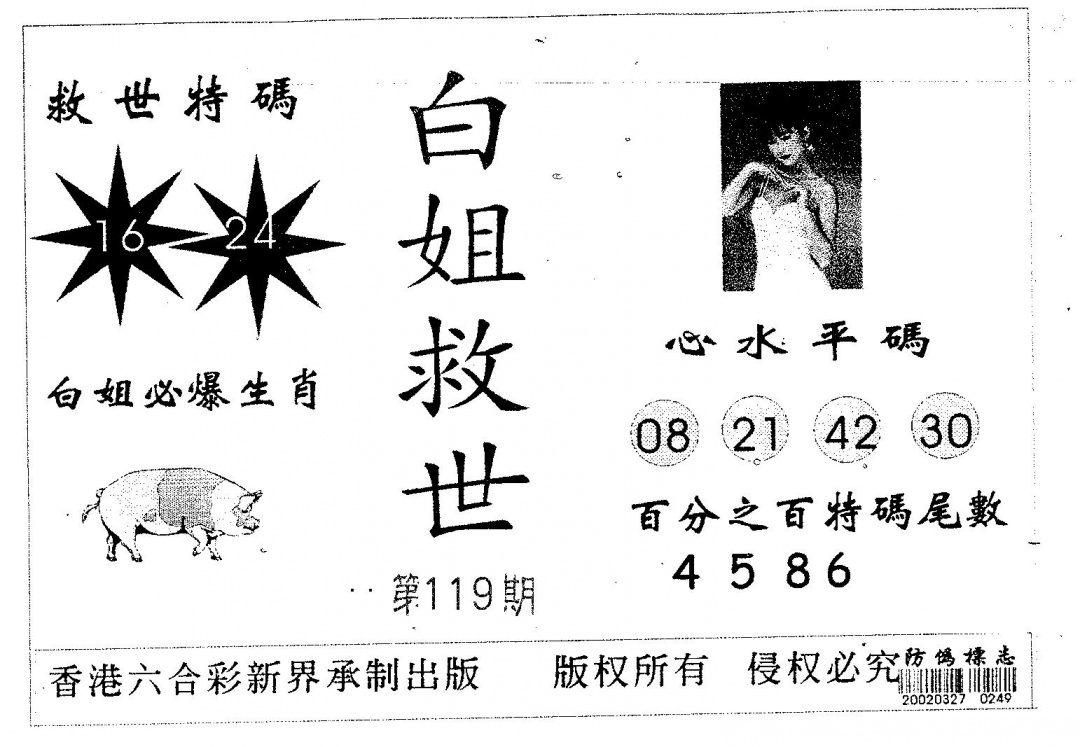 救世特碼
16 24
白姐必爆生肖
白姐救世
第119期
心水平碼
08 21 42 30
百分之百特碼尾數
4 5 8 6
香港六合彩新界承制出版 版权所有 侵权必究
防偽標志
20020327 0249